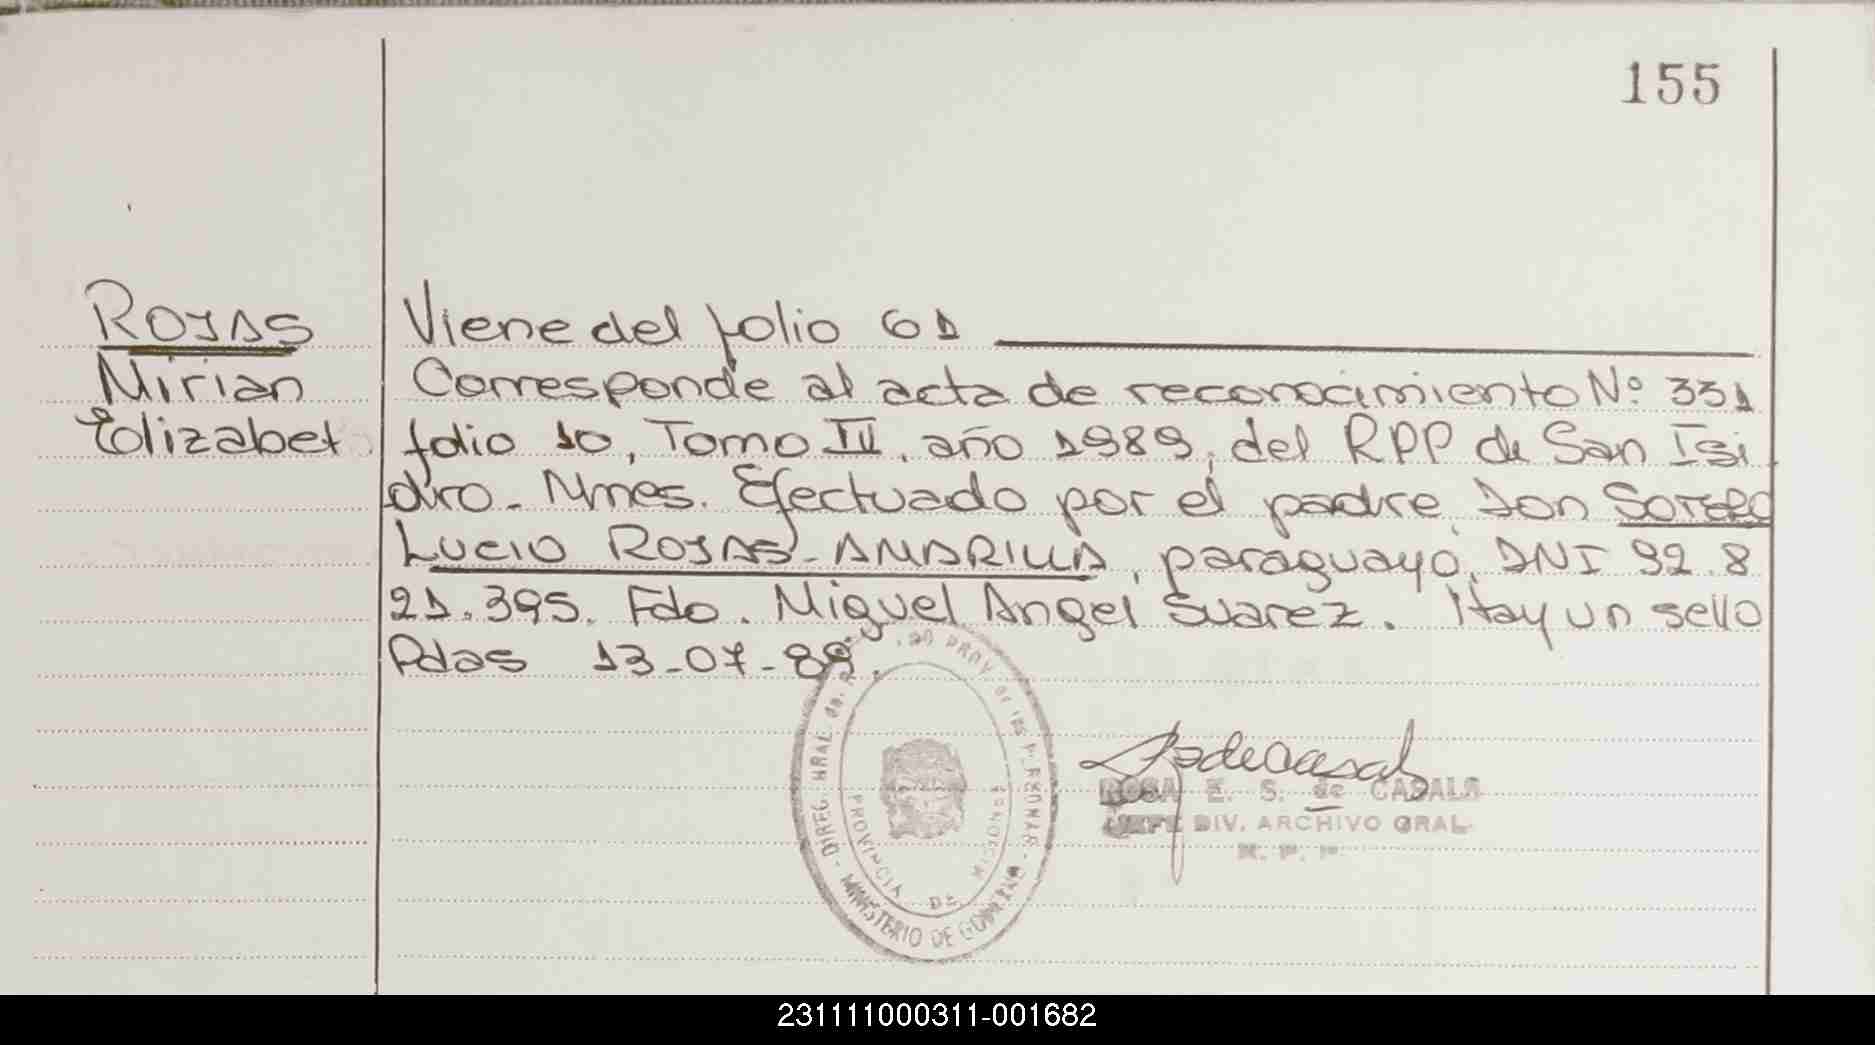 155
ROJAS
Mirian
Elizabet
Viene del folio 61
Corresponde al acta de reconocimiento Nº 331
folio 10, Tomo III, año 1989, del RPP de San Isi
dro - Mnes. Efectuado por el padre, Don SOTERO
LUCIO ROJAS - AMARILLA, paraguayo, DNI 92.8
21.395. Fdo. Miguel Angel Suarez. Hay un sello
Pdas 13-07-89.
PROV. de las PERSONAS
MINISTERIO DE GOBIERNO
PROVINCIA DE MISIONES
ROSA E. S. de CASALS
JEFE DIV. ARCHIVO GRAL.
R. P. P.
231111000311-001682